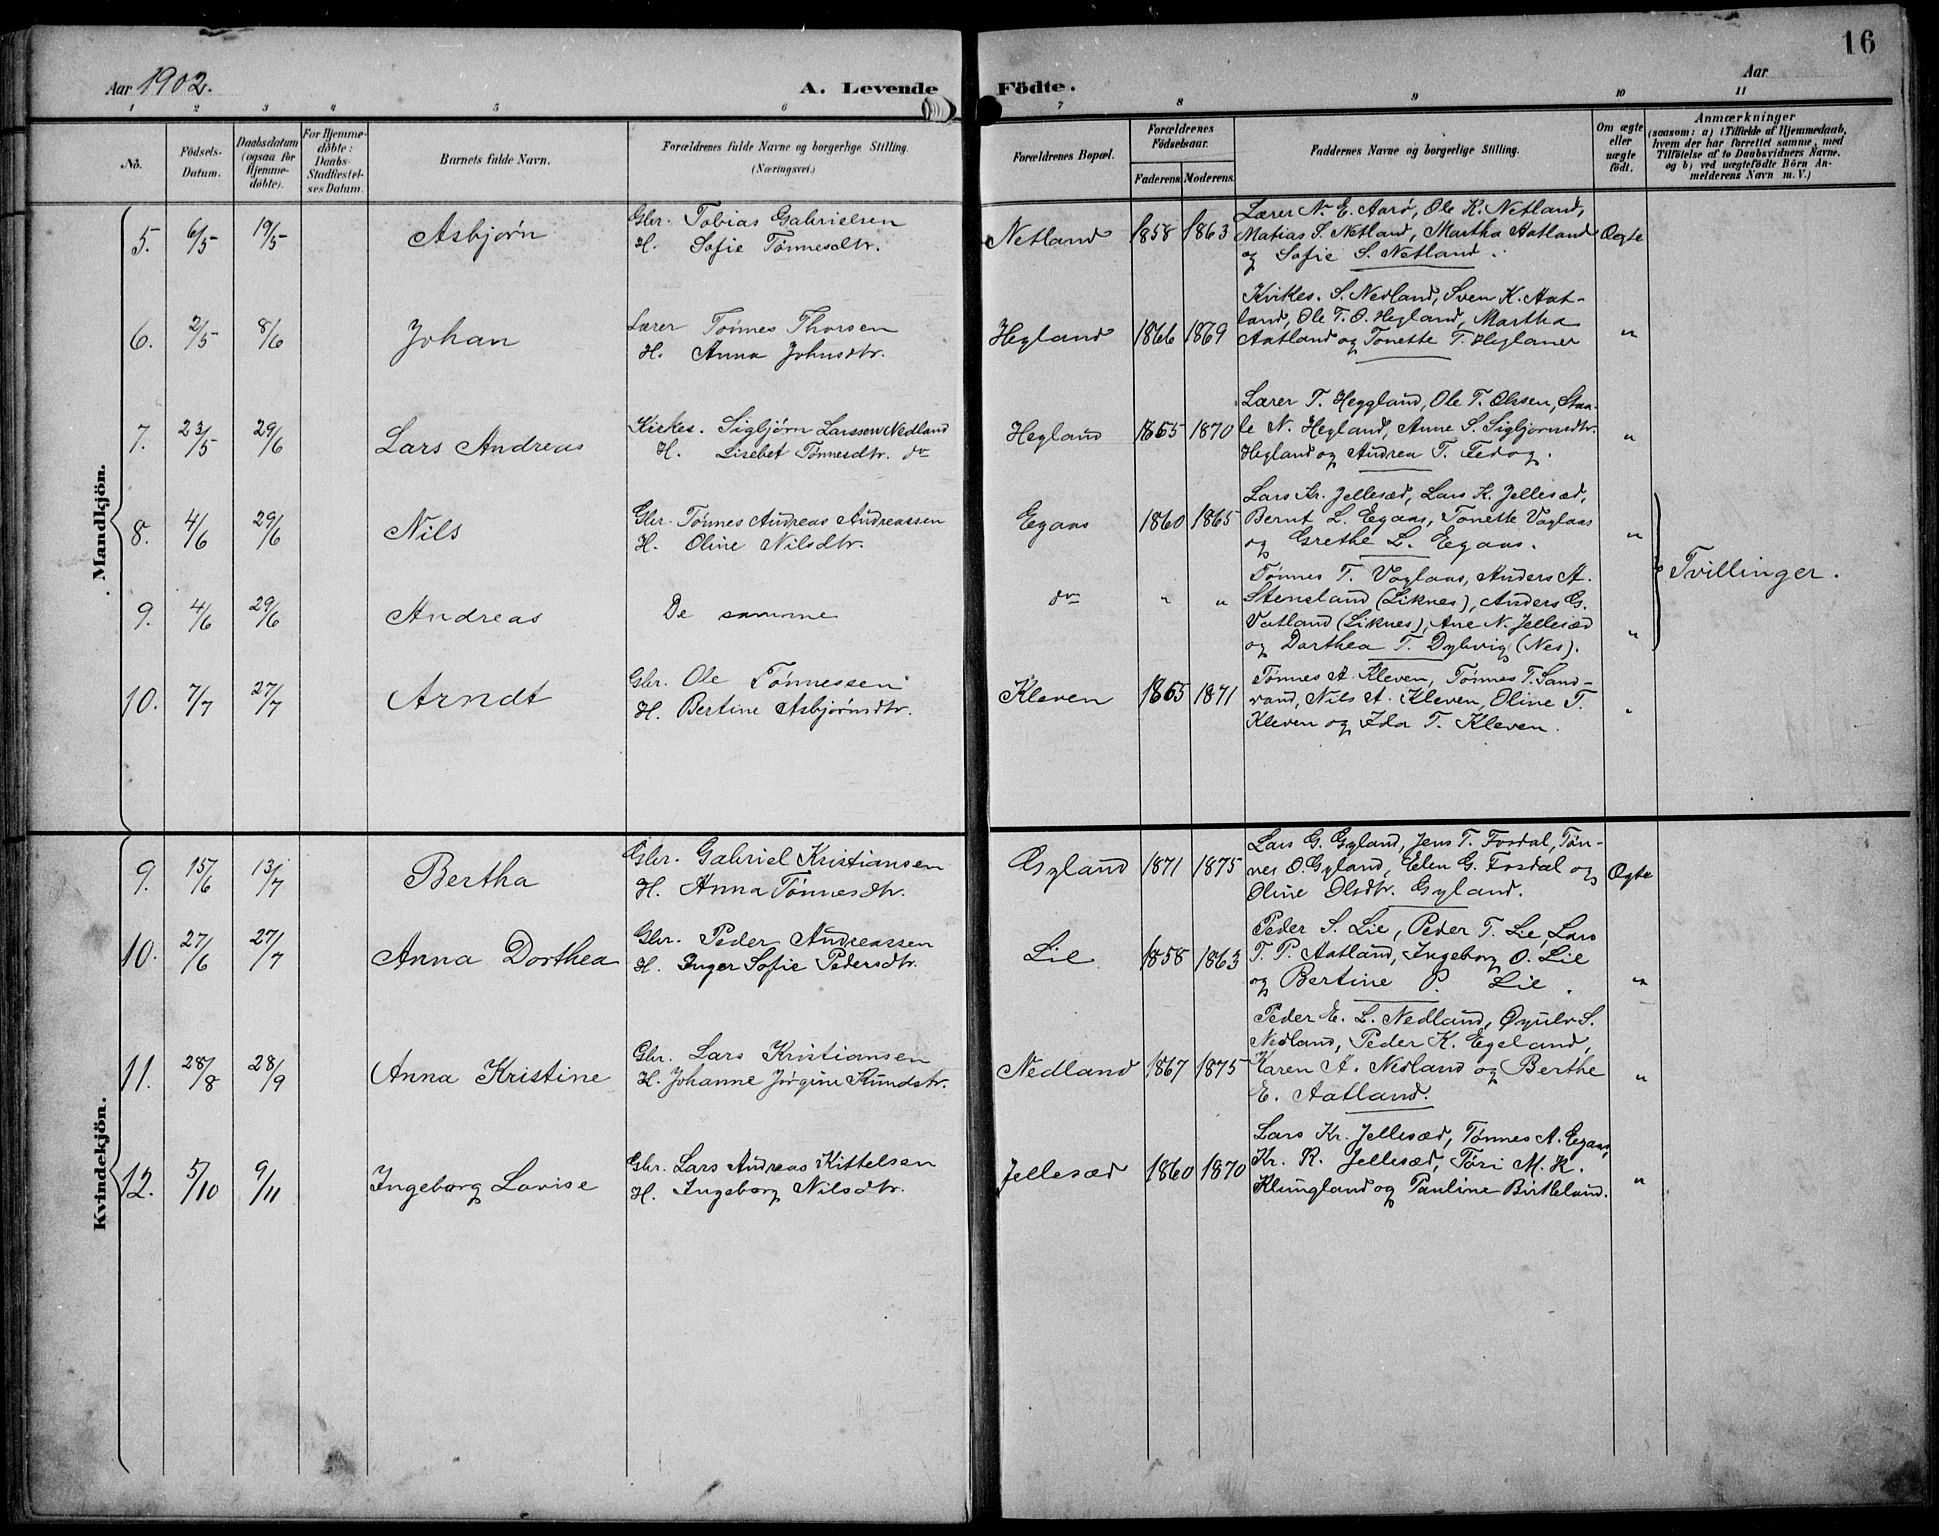 16
Aar 1902.
A. Levende Födte.
Aar
1 2 3 4 5 6 7 8 9 10 11
No.
Födsels-
Datum.
Daabsdatum
(ogsaa for
Hjemme-
döbte).
For Hjemme-
döbte:
Daabs-
Stadfæstel-
ses Datum.
Barnets fulde Navn.
Forældrenes fulde Navne og borgerlige Stilling.
(Næringsvei.)
Forældrenes Bopæl.
Forældrenes
Födselsaar.
Faderens.
Moderens.
Faddernes Navne og borgerlige Stilling.
Om ægte
eller
uægte
födt.
Anmærkninger
(saasom: a) i Tilfælde af Hjemmedaab,
hvem der har forrettet samme, med
Tilföielse af to Daabsvidners Navne,
og b) ved uægtefödte Börn An-
melderens Navn m. V.)
Mandkjön.
5. 6/5 19/5 Asbjørn
Gbr. Tobias Gabrielsen
H. Sofie Tønnesdtr.
Netland 1858 1863
Lærer N. E. Aarø, Ole K. Netland,
Matias S. Netland, Martha Aatland
og Sofie S. Netland.
Ægte
6. 2/5 8/6 Johan
Lærer Tønnes Thorsen
H. Anna Johnsdtr.
Hegland 1866 1869
Kirkes. S. Nedland, Sven K. Aat-
land, Ole T. O. Hegland, Martha
Aatland og Tonette T. Hegland
"
7. 23/5 29/6 Lars Andreas
Kirkes. Sigbjørn Larssen Nedland
H. Lisebet Tønnesdtr. do
Hegland 1865 1870
Lærer T. Heggland, Ole T. Olssen, Staa-
le N. Hegland, Anne S. Sigbjørnsdtr.
Hegland og Andrea T. Fedog.
"
8. 4/6 29/6 Nils
Gbr. Tønnes Andreas Andreassen
H. Oline Nilsdtr.
Egaas 1860 1865
Lars Kr. Jellesæd, Lars K. Jellesæd,
Bernt L. Egaas, Tonette Vaglaas
og Grethe L. Egaas.
"
Tvillinger.
9. 4/6 29/6 Andreas
De samme
do " "
Tønnes T. Vaglaas, Anders A.
Stensland (Liknes), Anders G.
Vatland (Liknes), Ane N. Jellesæd
og Dorthea T. Dybvig (Nes).
"
10. 7/7 27/7 Arndt
Gbr. Ole Tønnessen
H. Bertine Asbjørnsdtr.
Kleven 1865 1871
Tønnes A. Kleven, Tønnes T. Sand-
vand, Nils A. Kleven, Oline T.
Kleven og Ida T. Kleven.
"
Kvindekjön.
9. 15/6 13/7 Bertha
Gbr. Gabriel Kristiansen
H. Anna Tønnesdtr.
Gyland 1871 1875
Lars G. Gyland, Jens T. Frsdal, Tøn-
nes O. Gyland, Elen G. Frsdal og
Oline Olsdtr. Gyland.
Ægte
10. 27/6 27/7 Anna Dorthea
Gbr. Peder Andreassen
H. Inger Sofie Pedersdtr.
Lie 1858 1863
Peder S. Lie, Peder T. Lie, Lars
T. P. Aatland, Ingeborg O. Lie
og Bertine P. Lie.
"
11. 28/8 28/9 Anna Kristine
Gbr. Lars Kristiansen
H. Johanne Jørgine Knudsdtr.
Nedland 1867 1875
Peder E. L. Nedland, Øyulv S.
Nedland, Peder K. Egeland,
Karen A. Nedland og Berthe
E. Aatland.
"
12. 5/10 9/11 Ingeborg Lovise
Gbr. Lars Andreas Kittelsen
H. Ingeborg Nilsdtr.
Jellesæd 1860 1870
Lars Kr. Jellesæd, Tønnes A. Egaas,
Kr. R. Jellesæd, Tøri M. K.
Klungland og Pauline Birkeland.
"